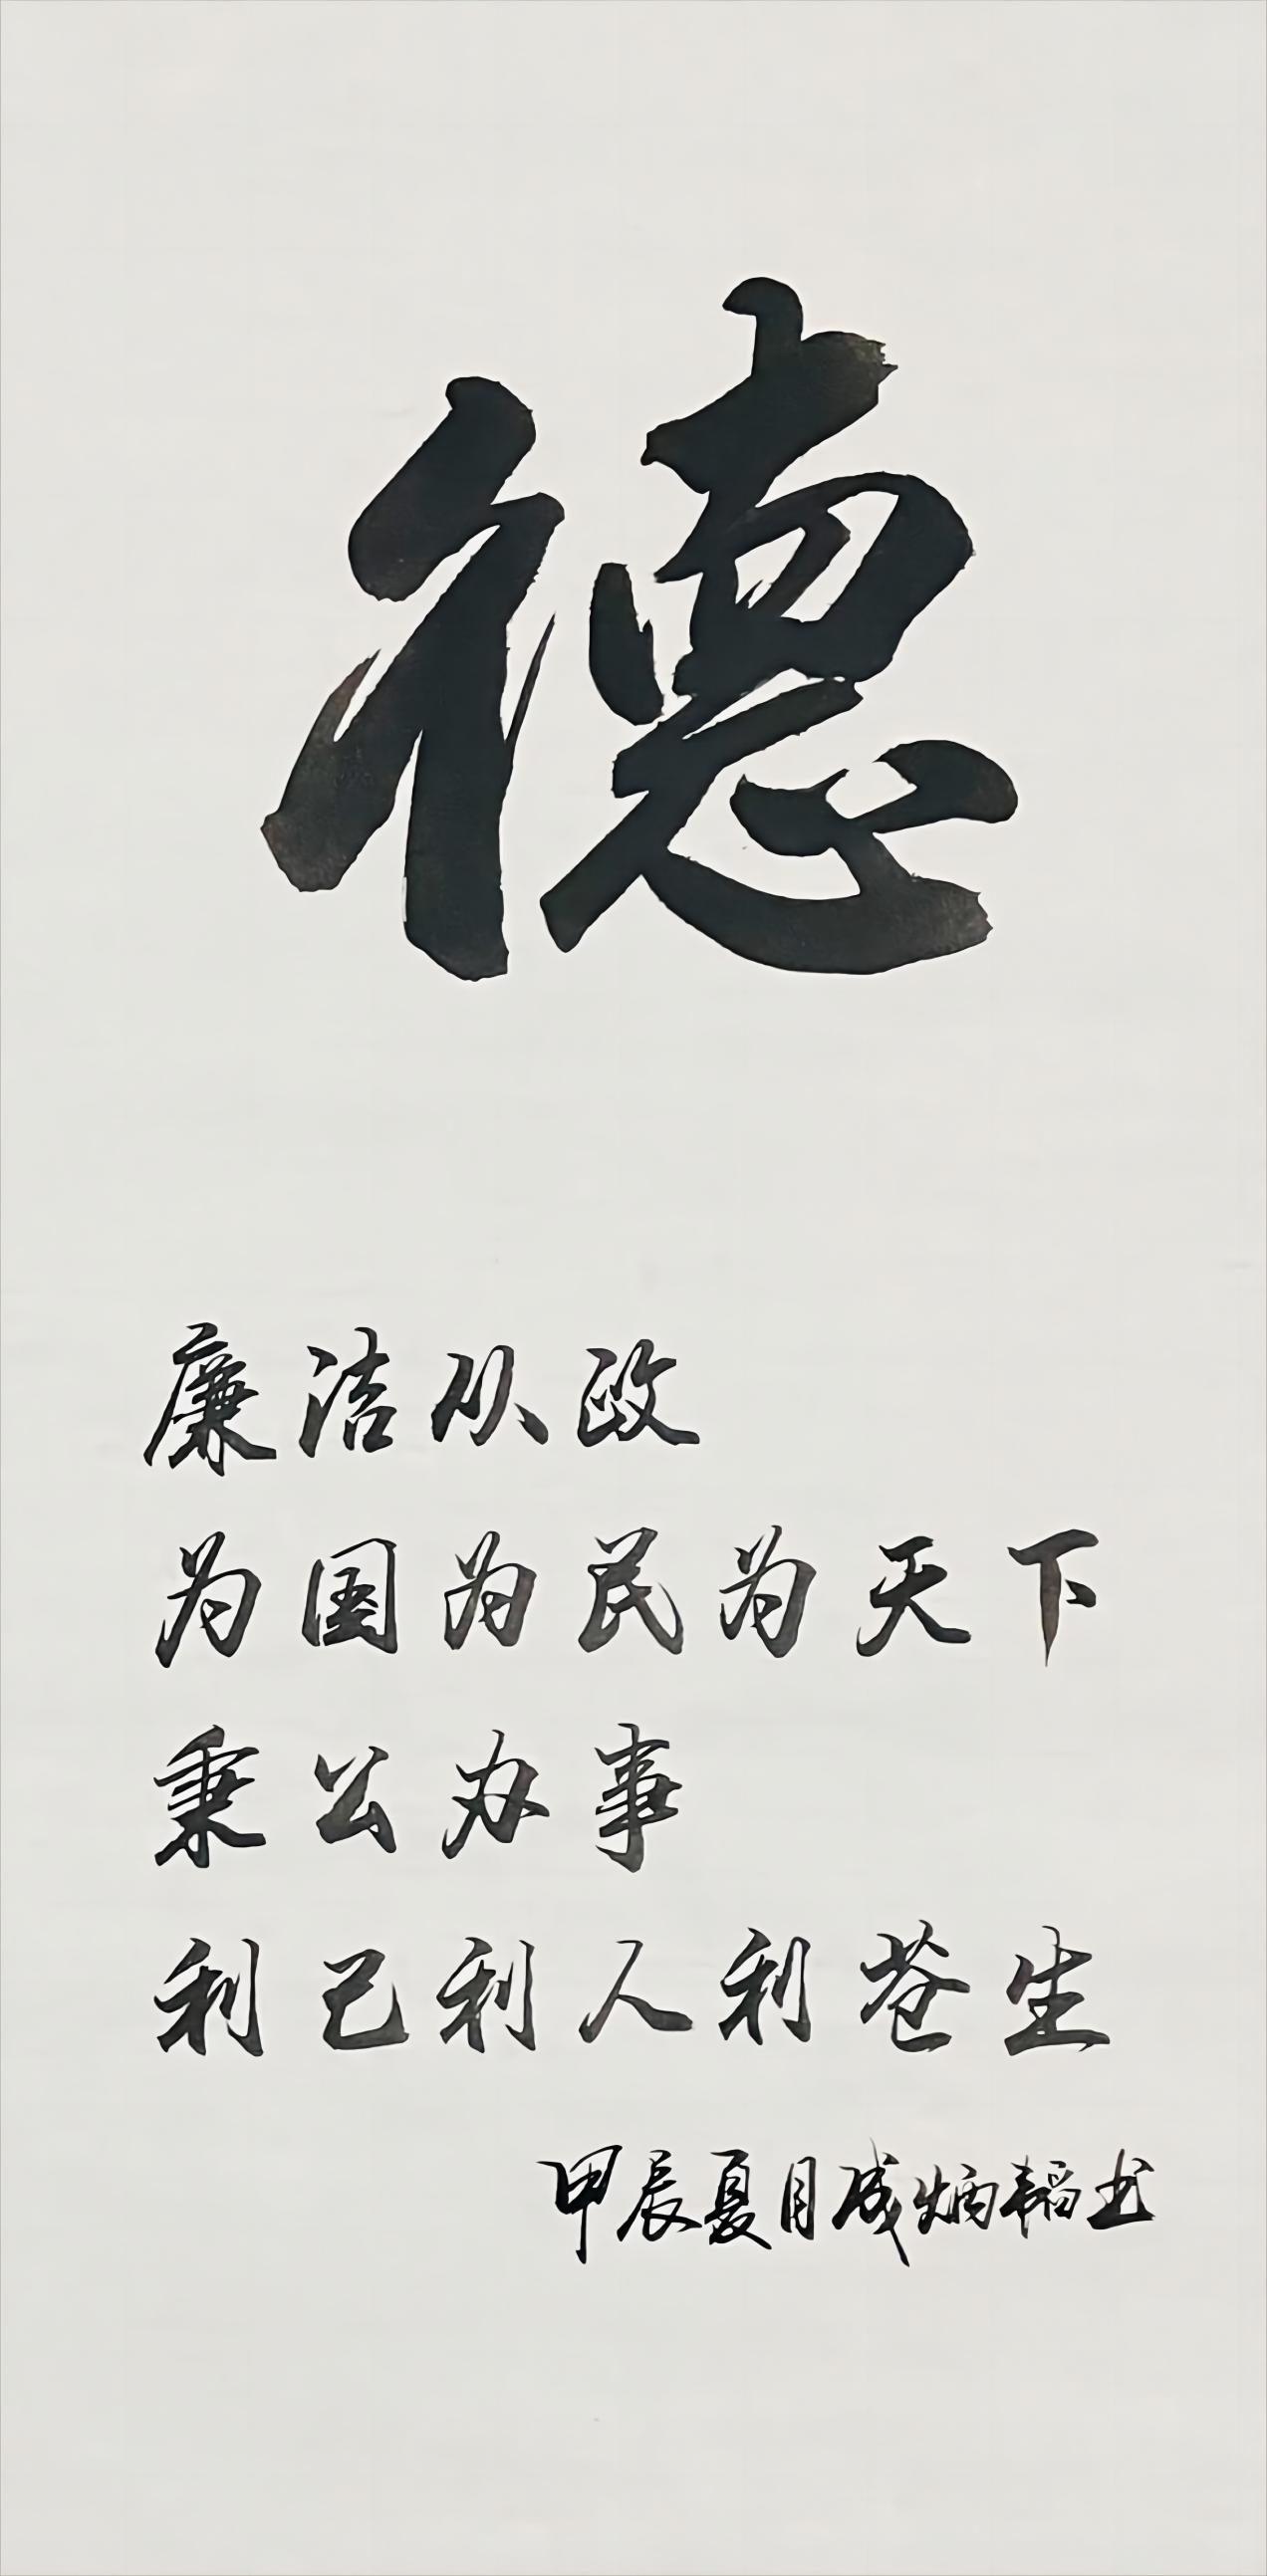 德
廉洁从政
为国为民为天下
秉公办事
利己利人利苍生
甲辰夏月成炳韬书